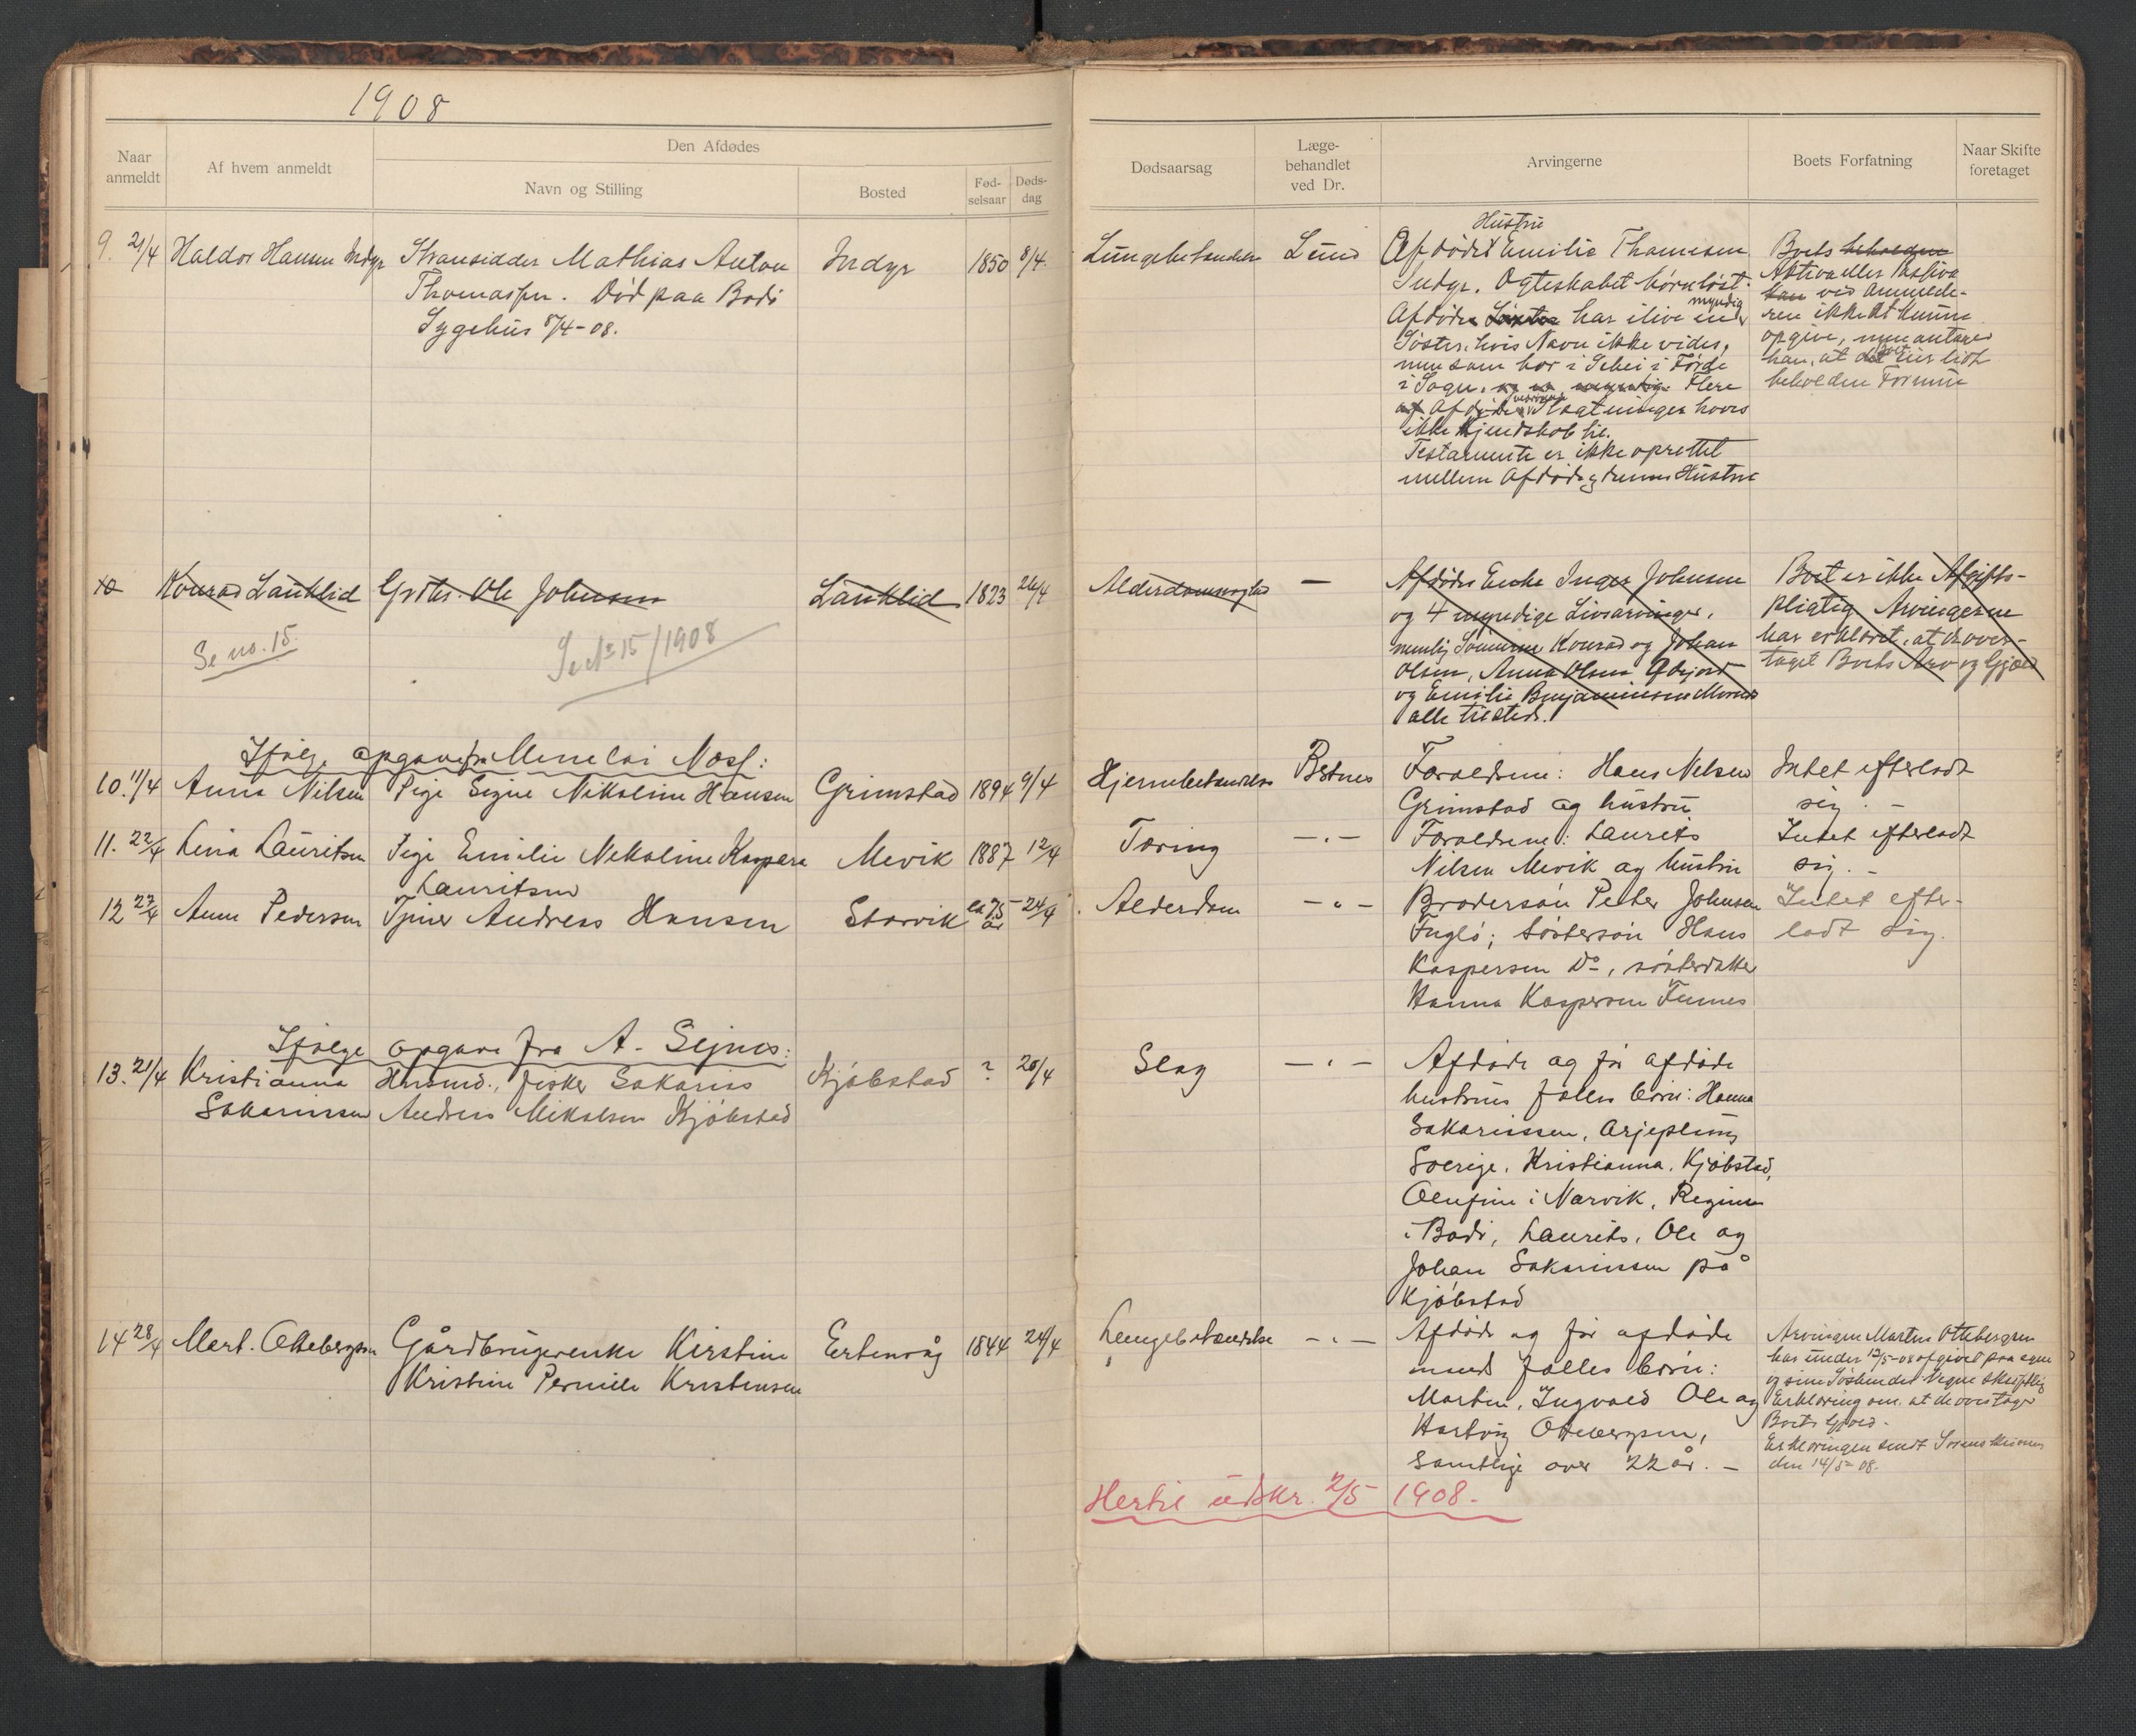 1908
Naar anmeldt
Af hvem anmeldt
Den Afdødes
Navn og Stilling
Bosted
Fød-selsaar
Døds-dag
Dødsaarsag
Læge-behandlet ved Dr.
Arvingerne
Boets Forfatning
Naar Skifte foretaget
9. 21/4 Haldor Hansen Indyr
Strandsidder Mathias Anton
Thomassen. Død paa Bodø
Sygehus 8/4-08.
Indyr
1850 8/4.
Lungebetændelse
Lund
Hustru
Afdødes Emilie Thomesen
Indyr. Ægteskabet børnløst.
myndig
Afdøde Søster har ilive en
Søster, hvis Navn ikke vides,
men som bor i Førde
i Sogn. Flere
af Afdødes Slægtninger haves
ikke Kjendskab til.
Testamente er ikke oprettet
mellem Afdøde og dennes Hustru
Boets beholdne
Aktiva eller Passiva
kan ved Anmelde-
ren ikke at kunne
opgive, men antager
han, at det er lidt
beholden Formue
10 Konrad Lauklid
Gdbr. Ole Johnsen
Lauklid
1823 26/4
Alderdomssvaghed
—
Afdødes Enke Inger Johnsen
og 4 myndige Livsarvinger,
nemlig Sønnerne Konrad og Johan
Olsen, Anna Olsen
og Emilie Benjaminsen
alle tilstede.
Boet er ikke Afgifts-
pligtig Arvingerne
har erklæret, at de over-
taget Boets Arv og Gjæld
Se no. 15.
Se No 15/1908
Ifølge opgave fra Menelai Moss:
10. 11/4 Anna Nilsen
Pige Signe Nikoline Hansen
Grimstad
1894 9/4
Hjernebetændelse
Betnes
Forældrene: Hans Nilsen
Grimstad og hustru
Intet efterladt
sig. -
11. 22/4 Lina Lauritsen
Pige Emilie Nikoline Kaspara
Lauritsen
Mevik
1887 12/4
Tæring
— " —
Forældrene: Laurits
Nilsen Mevik og hustru
Intet efterladt
sig. -
12 27/4 Anne Pedersen
Tjener Andreas Hansen
Storvik
ca 75 år
24/4
Alderdom
— " —
Brodersøn Peter Johnsen
Fuglø; søstersøn Hans
Kaspersen Do, søsterdatter
Hanna Kaspersen Finnes
Intet efter-
ladt sig.
Ifølge opgave fra A. Sejnes:
13. 21/4 Kristianna
Sakariassen
Husmd., fisker Sakarias
Andreas Mikalsen Kjøbstad
Kjøbstad
? 20/4
Slag
— " —
Afdøde og før afdøde
hustrus fælles børn: Hanna
Sakariassen, Arjeplong
Sverige, Kristianna, Kjøbstad,
Olufine i Narvik, Regine
i Bodø, Laurits, Ole og
Johan Sakariassen på
Kjøbstad
14 28/4 Mart. Ottebergsen
Gårdbrugerenke Kirstine
Kristine Pernille Kristensen
Ertenvåg
1844 24/4
Lungebetændelse
— " —
Afdøde og før afdøde
mands fælles børn:
Martin, Ingvald Ole og
Hartvig Ottebergsen,
samtlige over 22 år. —
Arvingen Martin Ottebergsen
har under 12/5-08 opgivet paa egne
og sine Søskendes Vegne skriftlig
Erklæring om, at de overtager
Boets Gjæld.
Erklæringen sendt Sorenskriveren
den 14/5-08.
Hertil udskr. 2/5 1908.